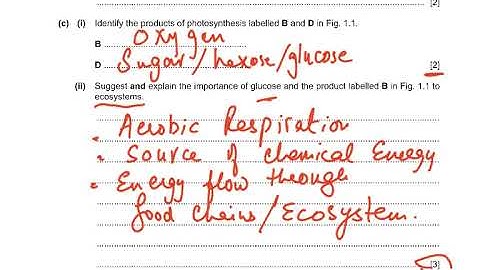 [2]
(c) (i) Identify the products of photosynthesis labelled B and D in Fig. 1.1.
B Oxygen
D Sugar/hexose/glucose [2]
(ii) Suggest and explain the importance of glucose and the product labelled B in Fig. 1.1 to
ecosystems.
Aerobic Respiration
Source of chemical Energy
Energy flow through
food chains/Ecosystem.
[3]